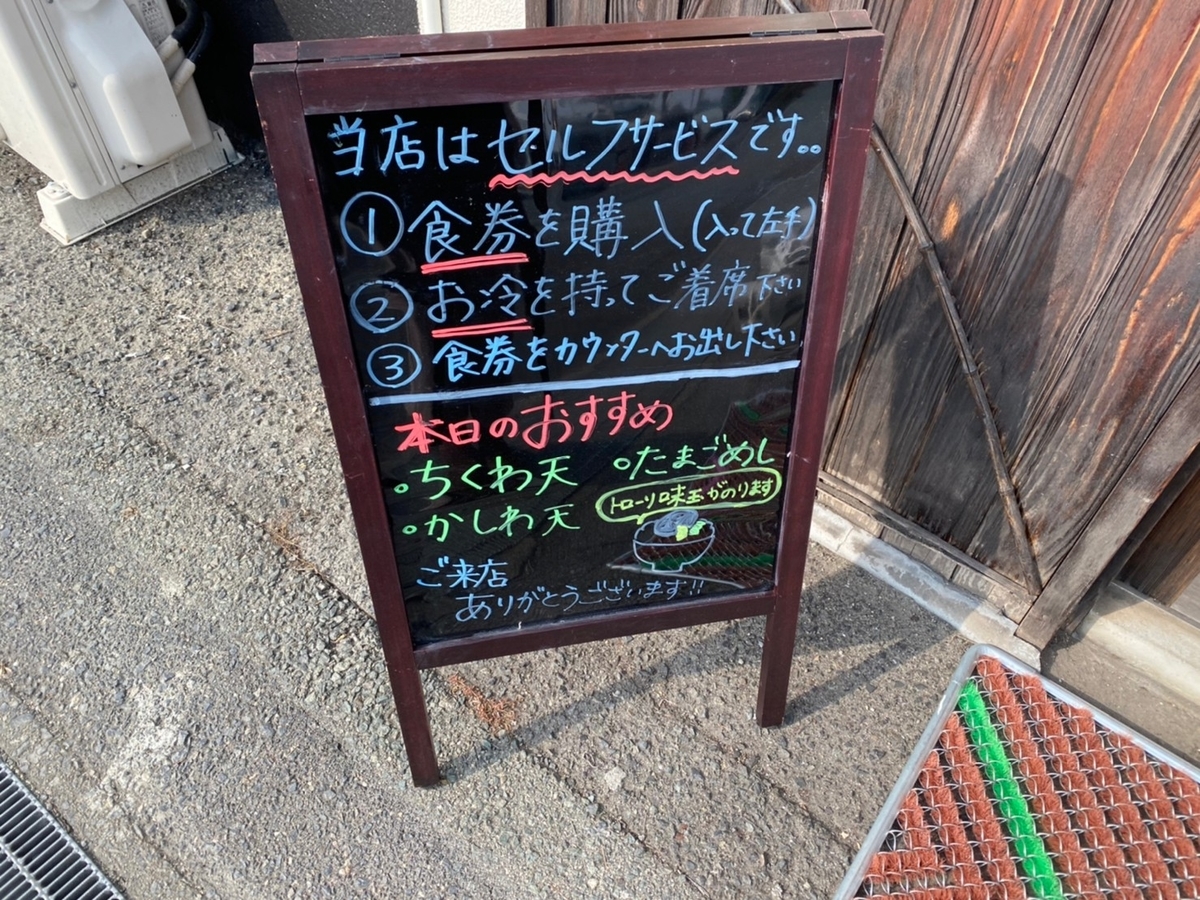 当店はセルフサービスです。。
① 食券を購入(入って左手)
② お冷を持ってご着席下さい
③ 食券をカウンターへお出し下さい
本日のおすすめ
。ちくわ天
。たまごめし
トローリ味玉がのります
。かしわ天
ご来店
ありがとうございます!!